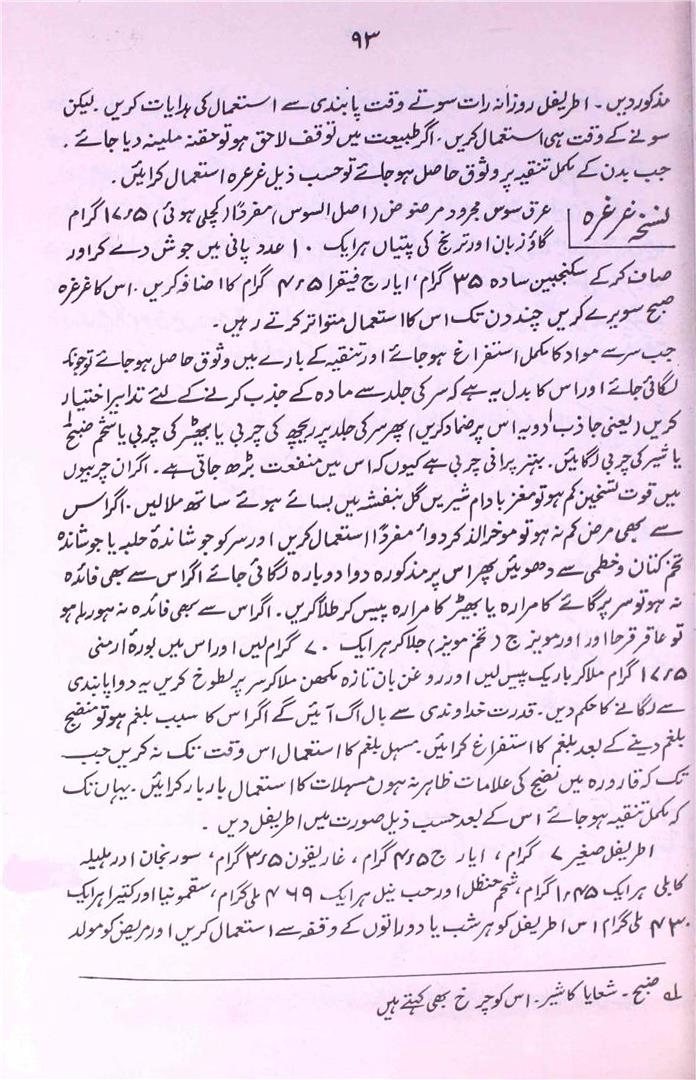 ۹۳
مذکور دیں۔ اطریفل روزانہ رات سوتے وقت پابندی سے استعمال کی ہدایات کریں۔ لیکن
سونے کے وقت ہی استعمال کریں۔ اگر طبیعت میں توقف لاحق ہو تو حقنہ ملینہ دیا جائے۔
جب بدن کے مکمل تنقیہ پر وثوق حاصل ہو جائے تو حسب ذیل غرغرہ استعمال کرائیں۔
نسخہ غرغرہ عرق سوس مجرود مرضوض (اصل السوس) مفرداً (کچلی ہوئی) ۱۷٫۵ گرام
گاؤزبان اور ترنج کی پتیاں ہر ایک ۱۰ عدد پانی میں جوش دے کر اور
صاف کر کے سکنجبین سادہ ۳۵ گرام، ایارج فیقرا ۴٫۵ گرام کا اضافہ کریں۔ اس کا غرغرہ
صبح سویرے کریں چند دن تک اس کا استعمال متواتر کرتے رہیں۔
جب سر سے مواد کا مکمل استفراغ ہو جائے اور تنقیہ کے بارے میں وثوق حاصل ہو جائے تو جونک
لگائی جائے اور اس کا بدل یہ ہے کہ سر کی جلد سے مادہ کے جذب کرنے کے لئے تدابیر اختیار
کریں (یعنی جاذب ادویہ اس پر ضماد کریں) پھر سر کی جلد پر ریچھ کی چربی یا بھیڑ کی چربی یا شحم ضبح۱؎
یا شیر کی چربی لگائیں۔ بہتر پرانی چربی ہے کیوں کہ اس میں منفعت بڑھ جاتی ہے۔ اگر ان چربیوں
میں قوت تسخین کم ہو تو مغز بادام شیریں گل بنفشہ میں بسائے ہوئے ساتھ ملالیں۔ اگر اس
سے بھی مرض کم نہ ہو تو موخر الذکر دواء مفرداً استعمال کریں اور سر کو جوشاندۂ حلبہ یا جوشاندہ
تخم کتان و خطمی سے دھوئیں پھر اس پر مذکورہ دوا دوبارہ لگائی جائے اگر اس سے بھی فائدہ
نہ ہو تو سر پر گائے کا مرارہ یا بھیڑ کا مرارہ پیس کر طلا کریں۔ اگر اس سے بھی فائدہ نہ ہو رہا ہو
تو عاقر قرحا اور اور مویزج (تخم مویز) جلا کر ہر ایک ۷۰ گرام لیں اور اس میں بورۂ ارمنی
۱۷٫۵ گرام ملا کر باریک پیس لیں اور روغن بان تازہ مکھن ملا کر سر پر لطوخ کریں یہ دوا پابندی
سے لگانے کا حکم دیں۔ قدرت خداوندی سے بال اگ آئیں گے اگر اس کا سبب بلغم ہو تو منضج
بلغم دینے کے بعد بلغم کا استفراغ کرائیں۔ مسہل بلغم کا استعمال اس وقت تک نہ کریں جب
تک کہ قارورہ میں نضج کی علامات ظاہر نہ ہوں مسہلات کا استعمال بار بار کرائیں۔ یہاں تک
کہ مکمل تنقیہ ہو جائے اس کے بعد حسب ذیل صورت میں اطریفل دیں۔
اطریفل صغیر ۷ گرام، ایارج ۴٫۵ گرام، غاریقون ۳٫۵ گرام، سورنجان اور ہلیلہ
کابلی ہر ایک ۱٫۴۵ گرام، شحم حنظل اور حب نیل ہر ایک ۴۶۹ ملی گرام، سقمونیا اور کتیرا ہر ایک
۴۳۰ ملی گرام اس اطریفل کو ہر شب یا دو راتوں کے وقفہ سے استعمال کریں اور مریض کو مولد
۱؎ ضبح۔ شعایا کا شیر۔ اس کو چرخ بھی کہتے ہیں